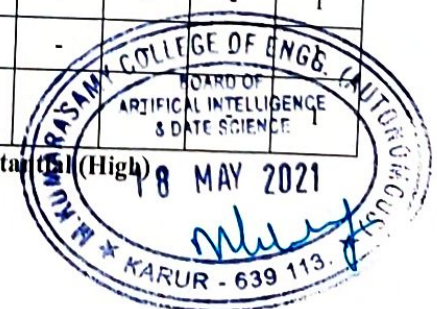 -
1
M.KUMARASAMY COLLEGE OF ENGG. (AUTONOMOUS)
BOARD OF
ARTIFICAL INTELLIGENCE
& DATE SCIENCE
1
(High)
18 MAY 2021
KARUR - 639 113.